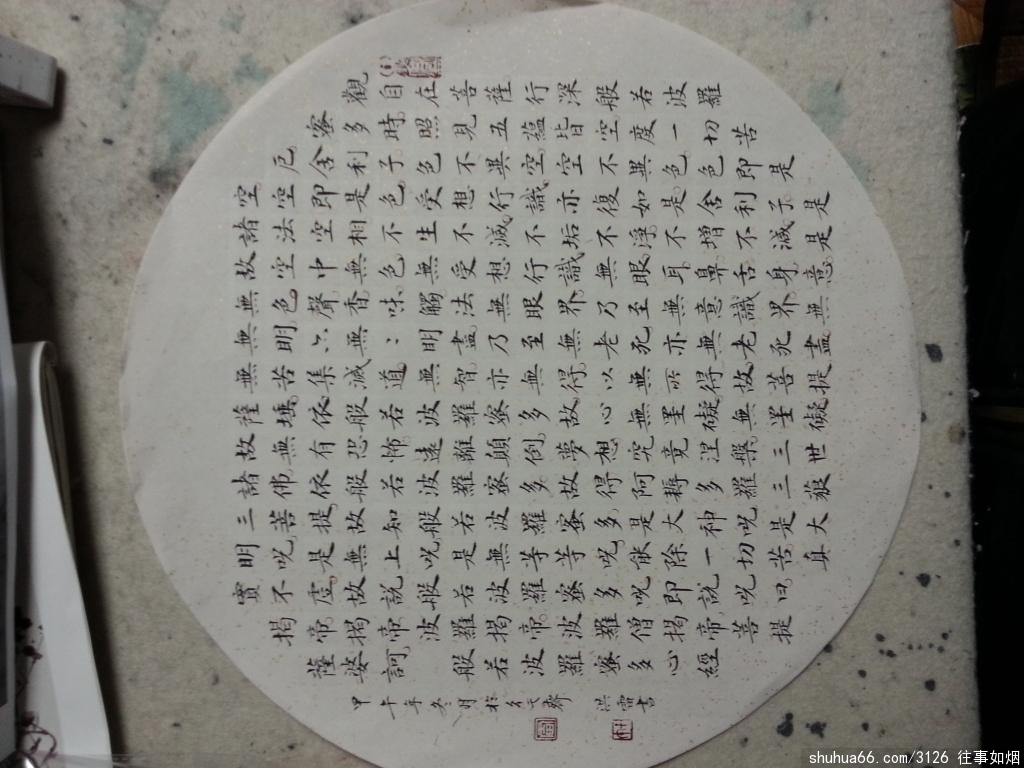 觀自在菩薩行深般若波羅
蜜多時照見五蘊皆空度一切苦
厄舍利子色不異空空不異色色即是
空空即是色受想行識亦復如是舍利子是
諸法空相不生不滅不垢不淨不增不減是
故空中無色無受想行識無眼耳鼻舌身意
無色聲香味觸法無眼界乃至無意識界無
無明亦無無明盡乃至無老死亦無老死盡
無苦集滅道無智亦無得以無所得故菩提
薩埵依般若波羅蜜多故心無罣礙無罣礙
故無有恐怖遠離顛倒夢想究竟涅槃三世
諸佛依般若波羅蜜多故得阿耨多羅三藐
三菩提故知般若波羅蜜多是大神呪是大
明呪是無上呪是無等等呪能除一切苦真
實不虛故說般若波羅蜜多呪即說呪曰
揭帝揭帝波羅揭帝波羅僧揭帝菩提
薩婆訶 般若波羅蜜多心經
甲午年冬月於 齋 洪雷書
shuhua66.com/3126 往事如烟